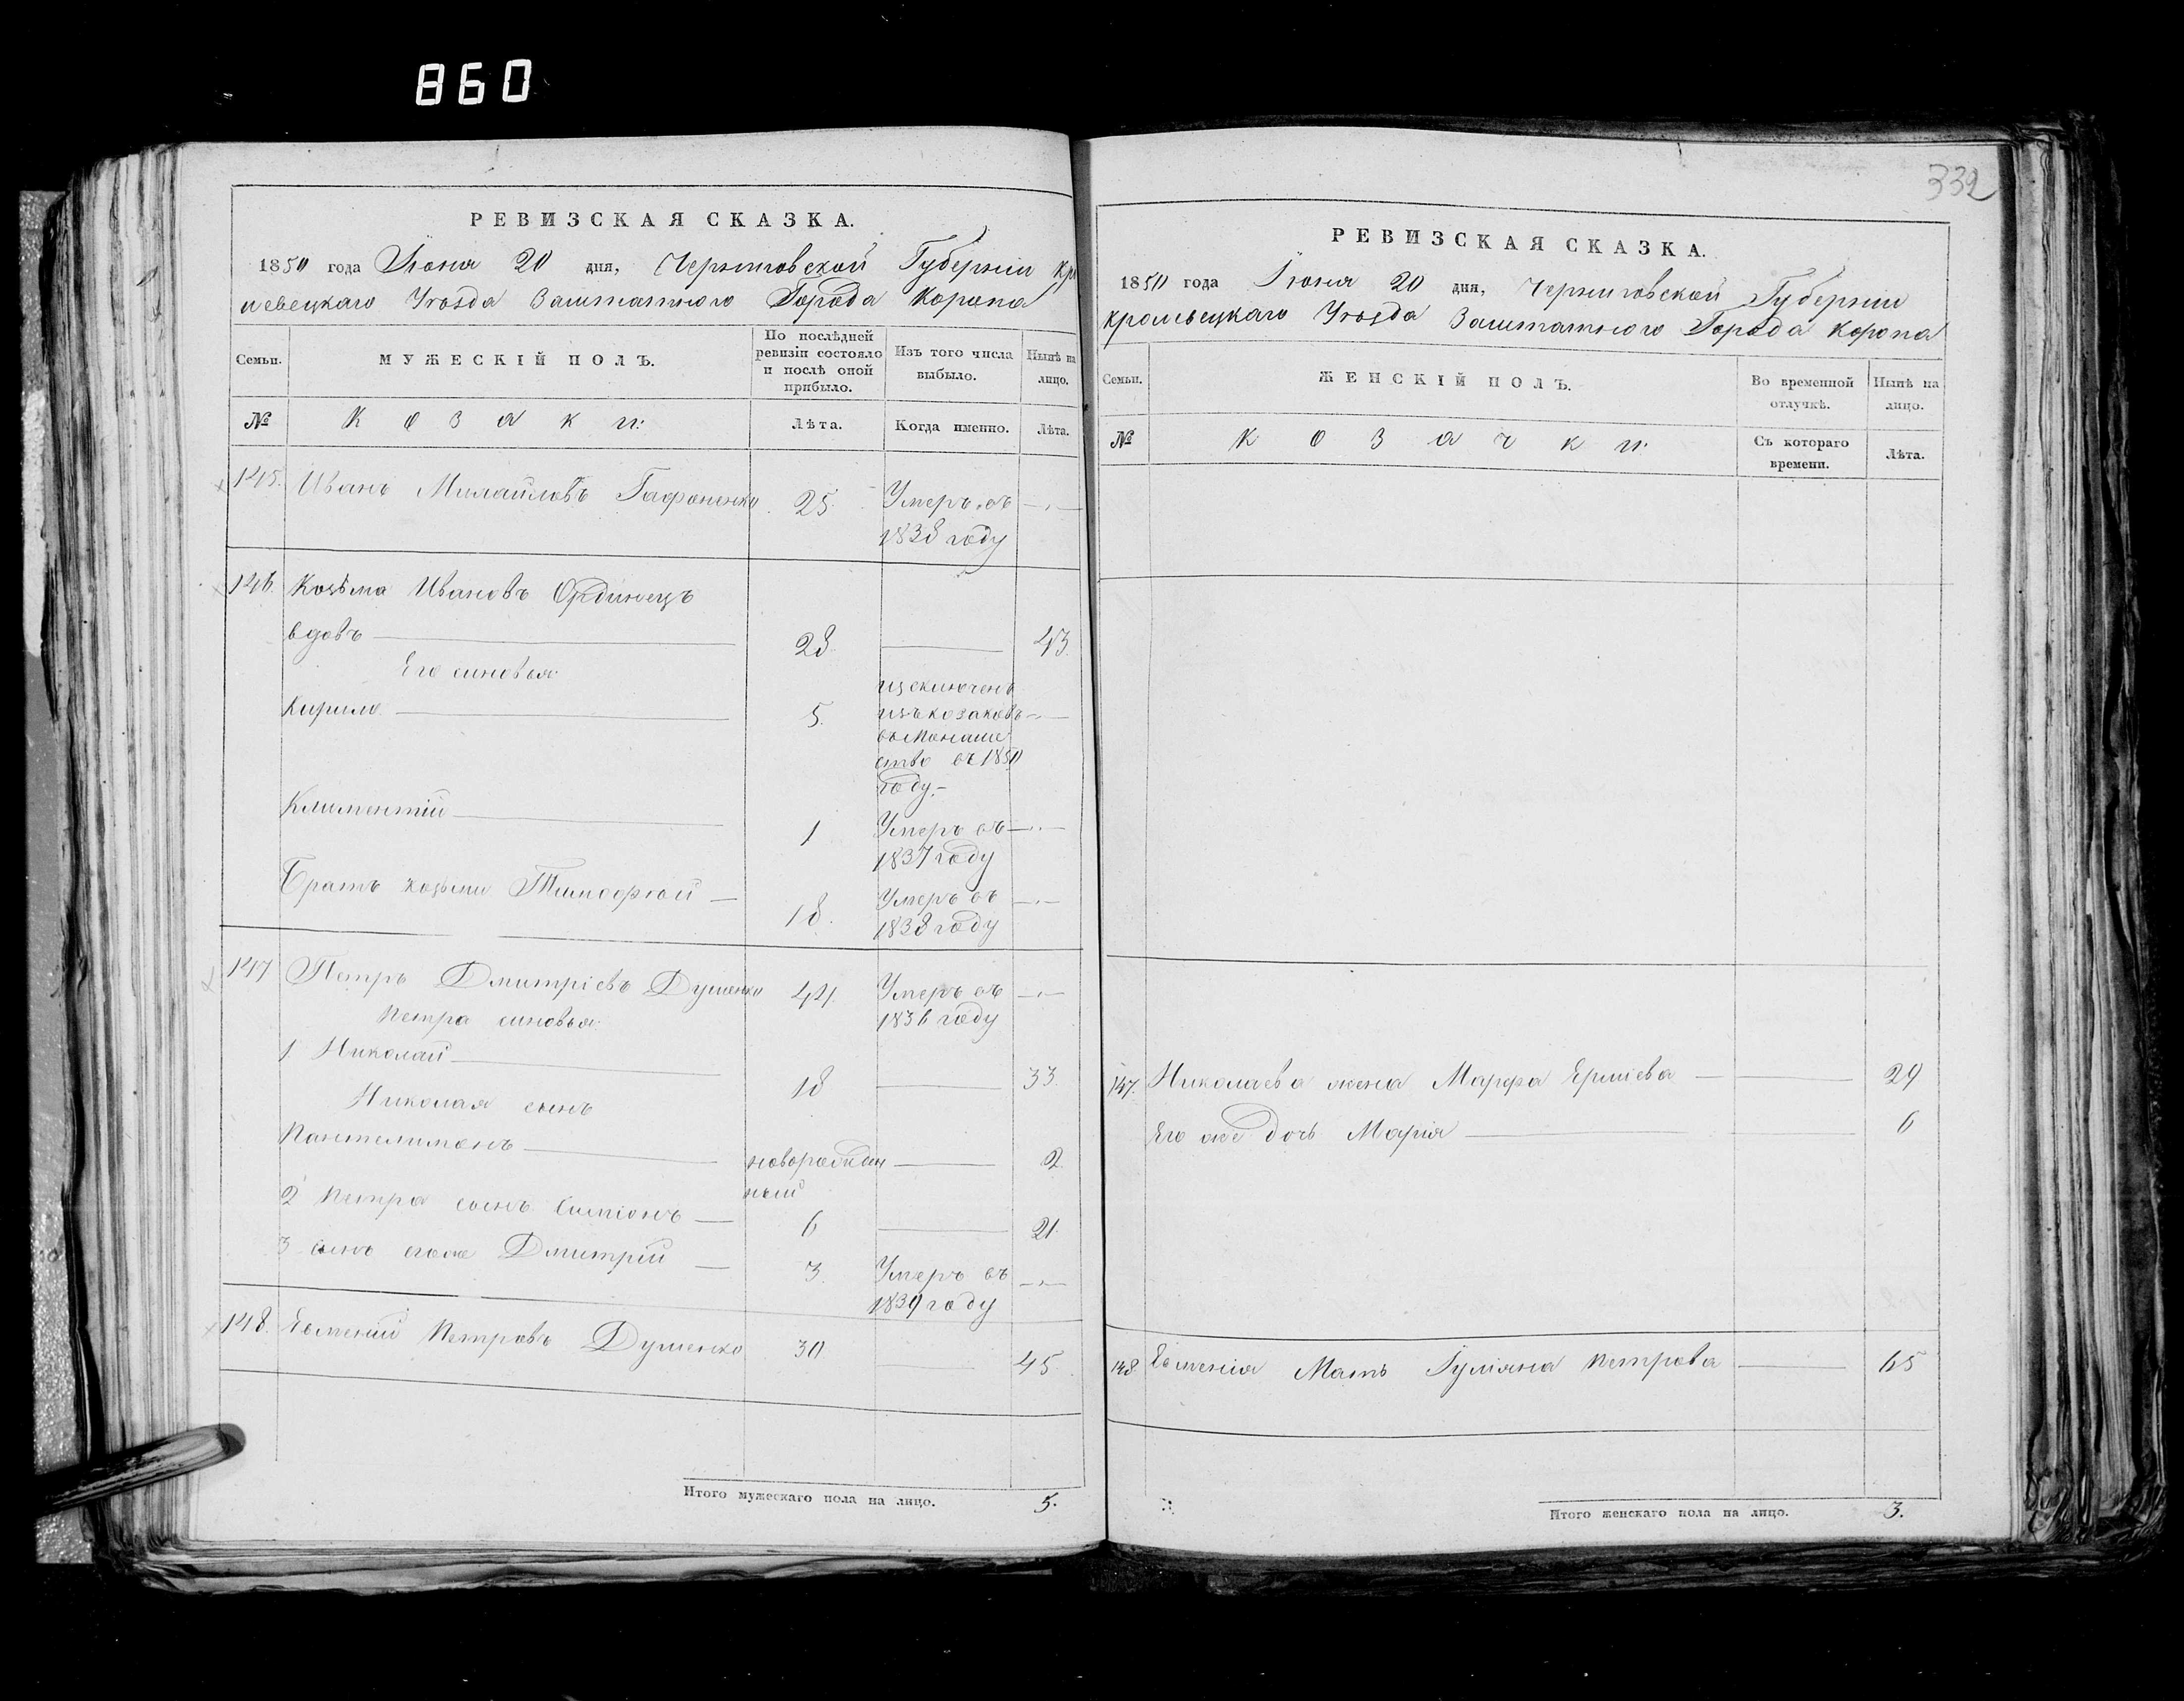 860
332
РЕВИЗСКАЯ СКАЗКА.
1850 года Июня 20 дня, Черниговской Губерніи Кро
левецкаго Уѣзда Заштатного Города Коропа
Семьи.
МУЖЕСКІЙ ПОЛЪ.
По послѣдней ревизіи состояло и послѣ оной прибыло.
Изъ того числа выбыло.
Нынѣ на лицо.
№
Козаки:
Лѣта.
Когда именно.
Лѣта.
145. Иванъ Михайловъ Гафоненко 25. Умеръ въ
1838 году
146. Козьма Ивановъ Ординецъ
вдовъ 28. 43.
Его синовья:
Кирило 5. изключенъ
изъ козаковъ
въ монаше
ство въ 1850
году.
Климентій 1 Умеръ въ
1837 году
Братъ козьми Тимофѣй 18. Умеръ въ
1838 году
147 Петръ Дмитріевъ Думенко 44. Умеръ въ
Петра синовья: 1836 году
1 Николай 18 33.
Николая сынъ
Пантелимонъ новорожден 2.
ный
2 Петра сынъ Симіонъ 6 21.
3 сынъ егоже Дмитрій 3. Умеръ въ
1839 году
148. Евменій Петровъ Думенко 30 45.
Итого мужескаго пола на лицо. 5.
РЕВИЗСКАЯ СКАЗКА.
1850 года Іюня 20 дня, Черниговской Губерніи
Кролевецкаго Уѣзда Заштатного Города Коропа
Семьи.
ЖЕНСКІЙ ПОЛЪ.
Во временной отлучкѣ.
Нынѣ на лицо.
№
Козачки:
Съ котораго времени.
Лѣта.
147. Николаева жена Марфа Ермиева 29
Его же дочь Марія 6
148. Евменія Мать Гуліяна Петрова 65
Итого женскаго пола на лицо. 3.